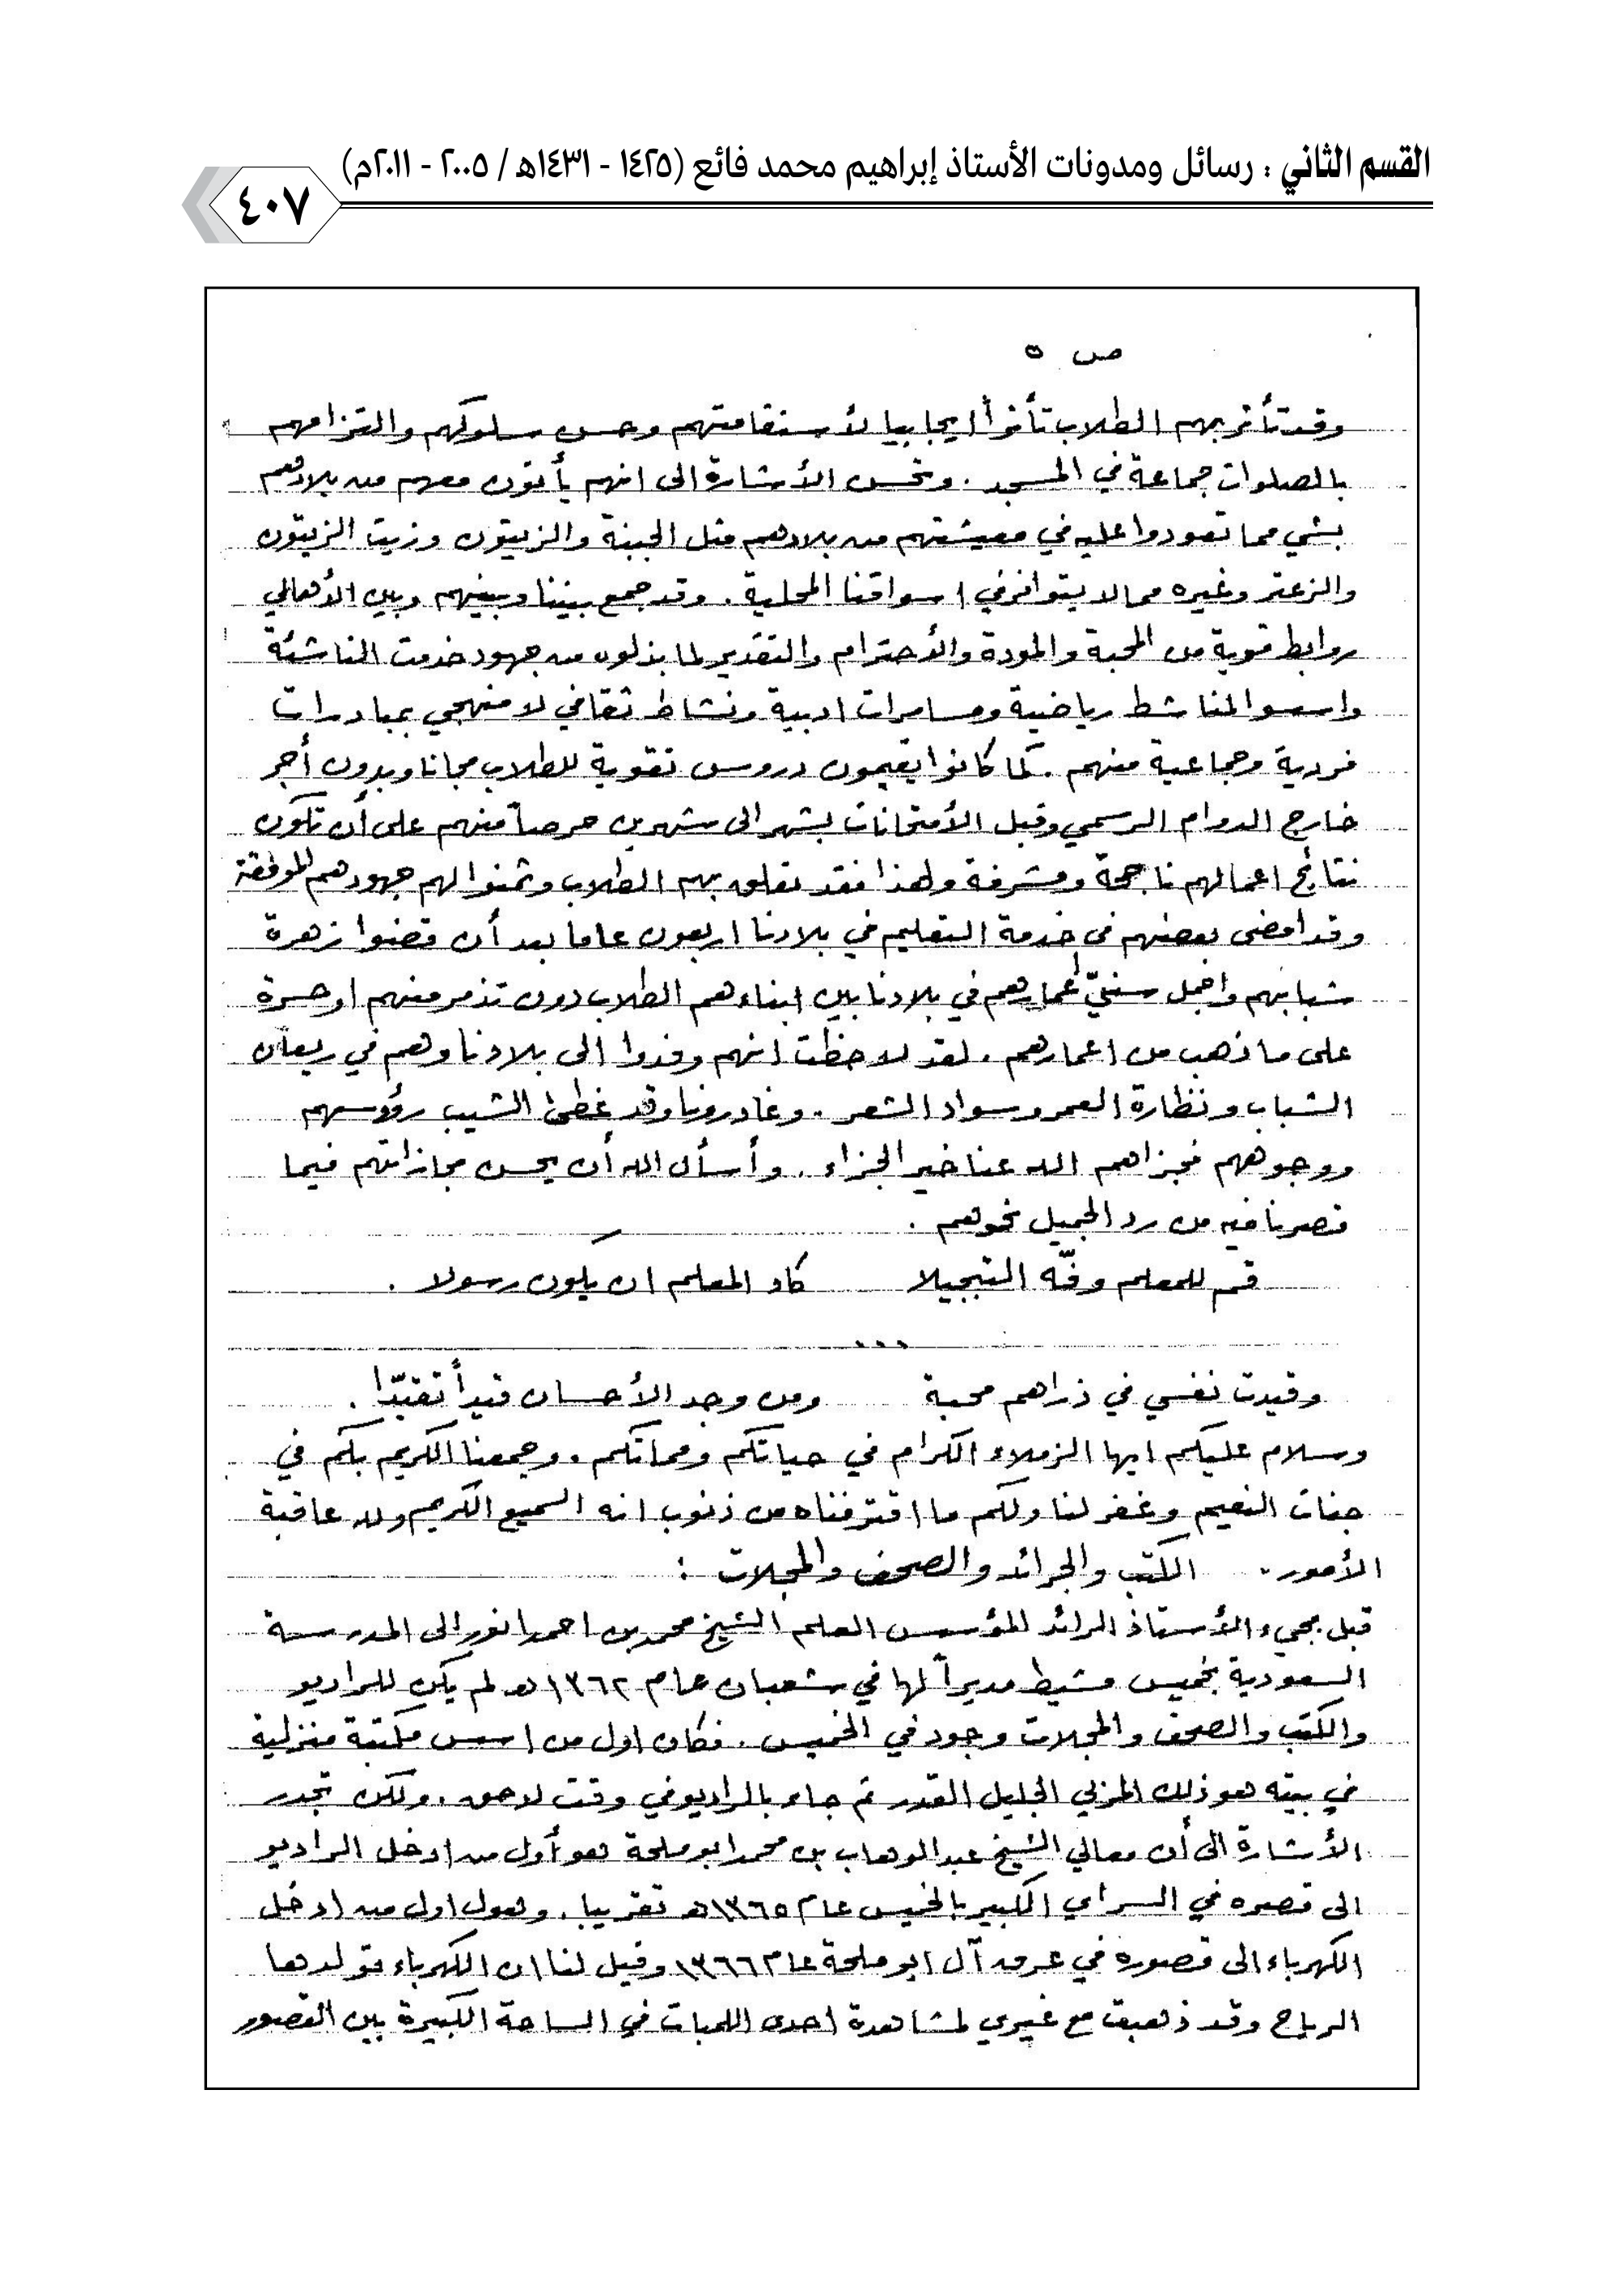 القسم الثاني : رسائل ومدونات الأستاذ إبراهيم محمد فائع (١٤٢٥ - ١٤٣١هـ / ٢٠٠٥ - ٢٠١١م)
٤٠٧
ص ٥
وقد تأثر بهم الطلاب تأثراً ايجابيا لأستقامتهم وحسن سلوكهم والتزامهم
بالصلوات جماعة في المسجد . وتحسن الأشارة الى انهم يأتون معهم من بلادهم
بشي مما تعودوا عليه في معيشتهم من بلادهم مثل الجبنة والزيتون وزيت الزيتون
والزعتر وغيره مما لا يتوافر في اسواقنا المحلية . وقد جمع بيننا وبينهم وبين الأهالي
روابط قوية من المحبة والمودة والأحترام والتقدير لما بذلوه من جهود خدمت الناشئة
واسسوا المناشط رياضية ومسامرات ادبية ونشاط ثقافي لا منهجي بمبادرات
فردية وجماعية منهم . كما كانوا يقيمون دروس تقوية للطلاب مجانا وبدون أجر
خارج الدوام الرسمي وقبل الأمتحانات بشهر الى شهرين حرصاً منهم على أن تكون
نتائج اعمالهم ناجحة ومشرفة ولهذا فقد تعلق بهم الطلاب وثمنوا لهم جهودهم الموفقة
وقد امضى بعضهم في خدمة التعليم في بلادنا اربعون عاما بعد أن قضوا زهرة
شبابهم واجمل سنيّ أعمارهم في بلادنا بين ابناءهم الطلاب دون تذمر منهم او حسرة
على ما ذهب من اعمارهم . لقد لاحظت انهم وفدوا الى بلادنا وهم في ريعان
الشباب ونظارة العمر وسواد الشعر . وغادرونا وقد غطى الشيب رؤوسهم
ووجوههم فجزاهم الله عنا خير الجزاء . وأسأل الله أن يحسن مجازاتهم فيما
قصرنا فيه من رد الجميل نحوهم .
قم للمعلم وفّه التبجيلا كاد المعلم ان يكون رسولا .
...
وقيدت نفسي في ذراهم محبة ومن وجد الأحسان قيداً تقيّدا .
وسلام عليكم ايها الزملاء الكرام في حياتكم ومماتكم . وجمعنا الكريم بكم في
جنات النعيم وغفر لنا ولكم ما اقترفناه من ذنوب انه السميع الكريم ولله عاقبة
الأمور . الكتب والجرائد والصحف والمجلات :
قبل مجيء الأستاذ الرائد المؤسس العلم الشيخ محمد بن احمد انور الى المدرسة
السعودية بخميس مشيط مديراً لها في شعبان عام ١٣٦٢ هـ لم يكن للراديو
والكتب والصحف والمجلات وجود في الخميس . فكان اول من اسس مكتبة منزلية
في بيته هو ذلك المربي الجليل القدر ثم جاء بالراديو في وقت لاحق . ولكن تجدر
الأشارة الى أن معالي الشيخ عبدالوهاب بن محمد ابو ملحة هو أول من ادخل الراديو
الى قصره في السراي الكبير بالخميس عام ١٣٦٥هـ تقريبا . وهو اول من ادخل
الكهرباء الى قصوره في عرق آل ابو ملحة عام ١٣٦٦ وقيل لنا ان الكهرباء تولدها
الرياح وقد ذهبت مع غيري لمشاهدة احدى اللمبات في الساحة الكبيرة بين القصور